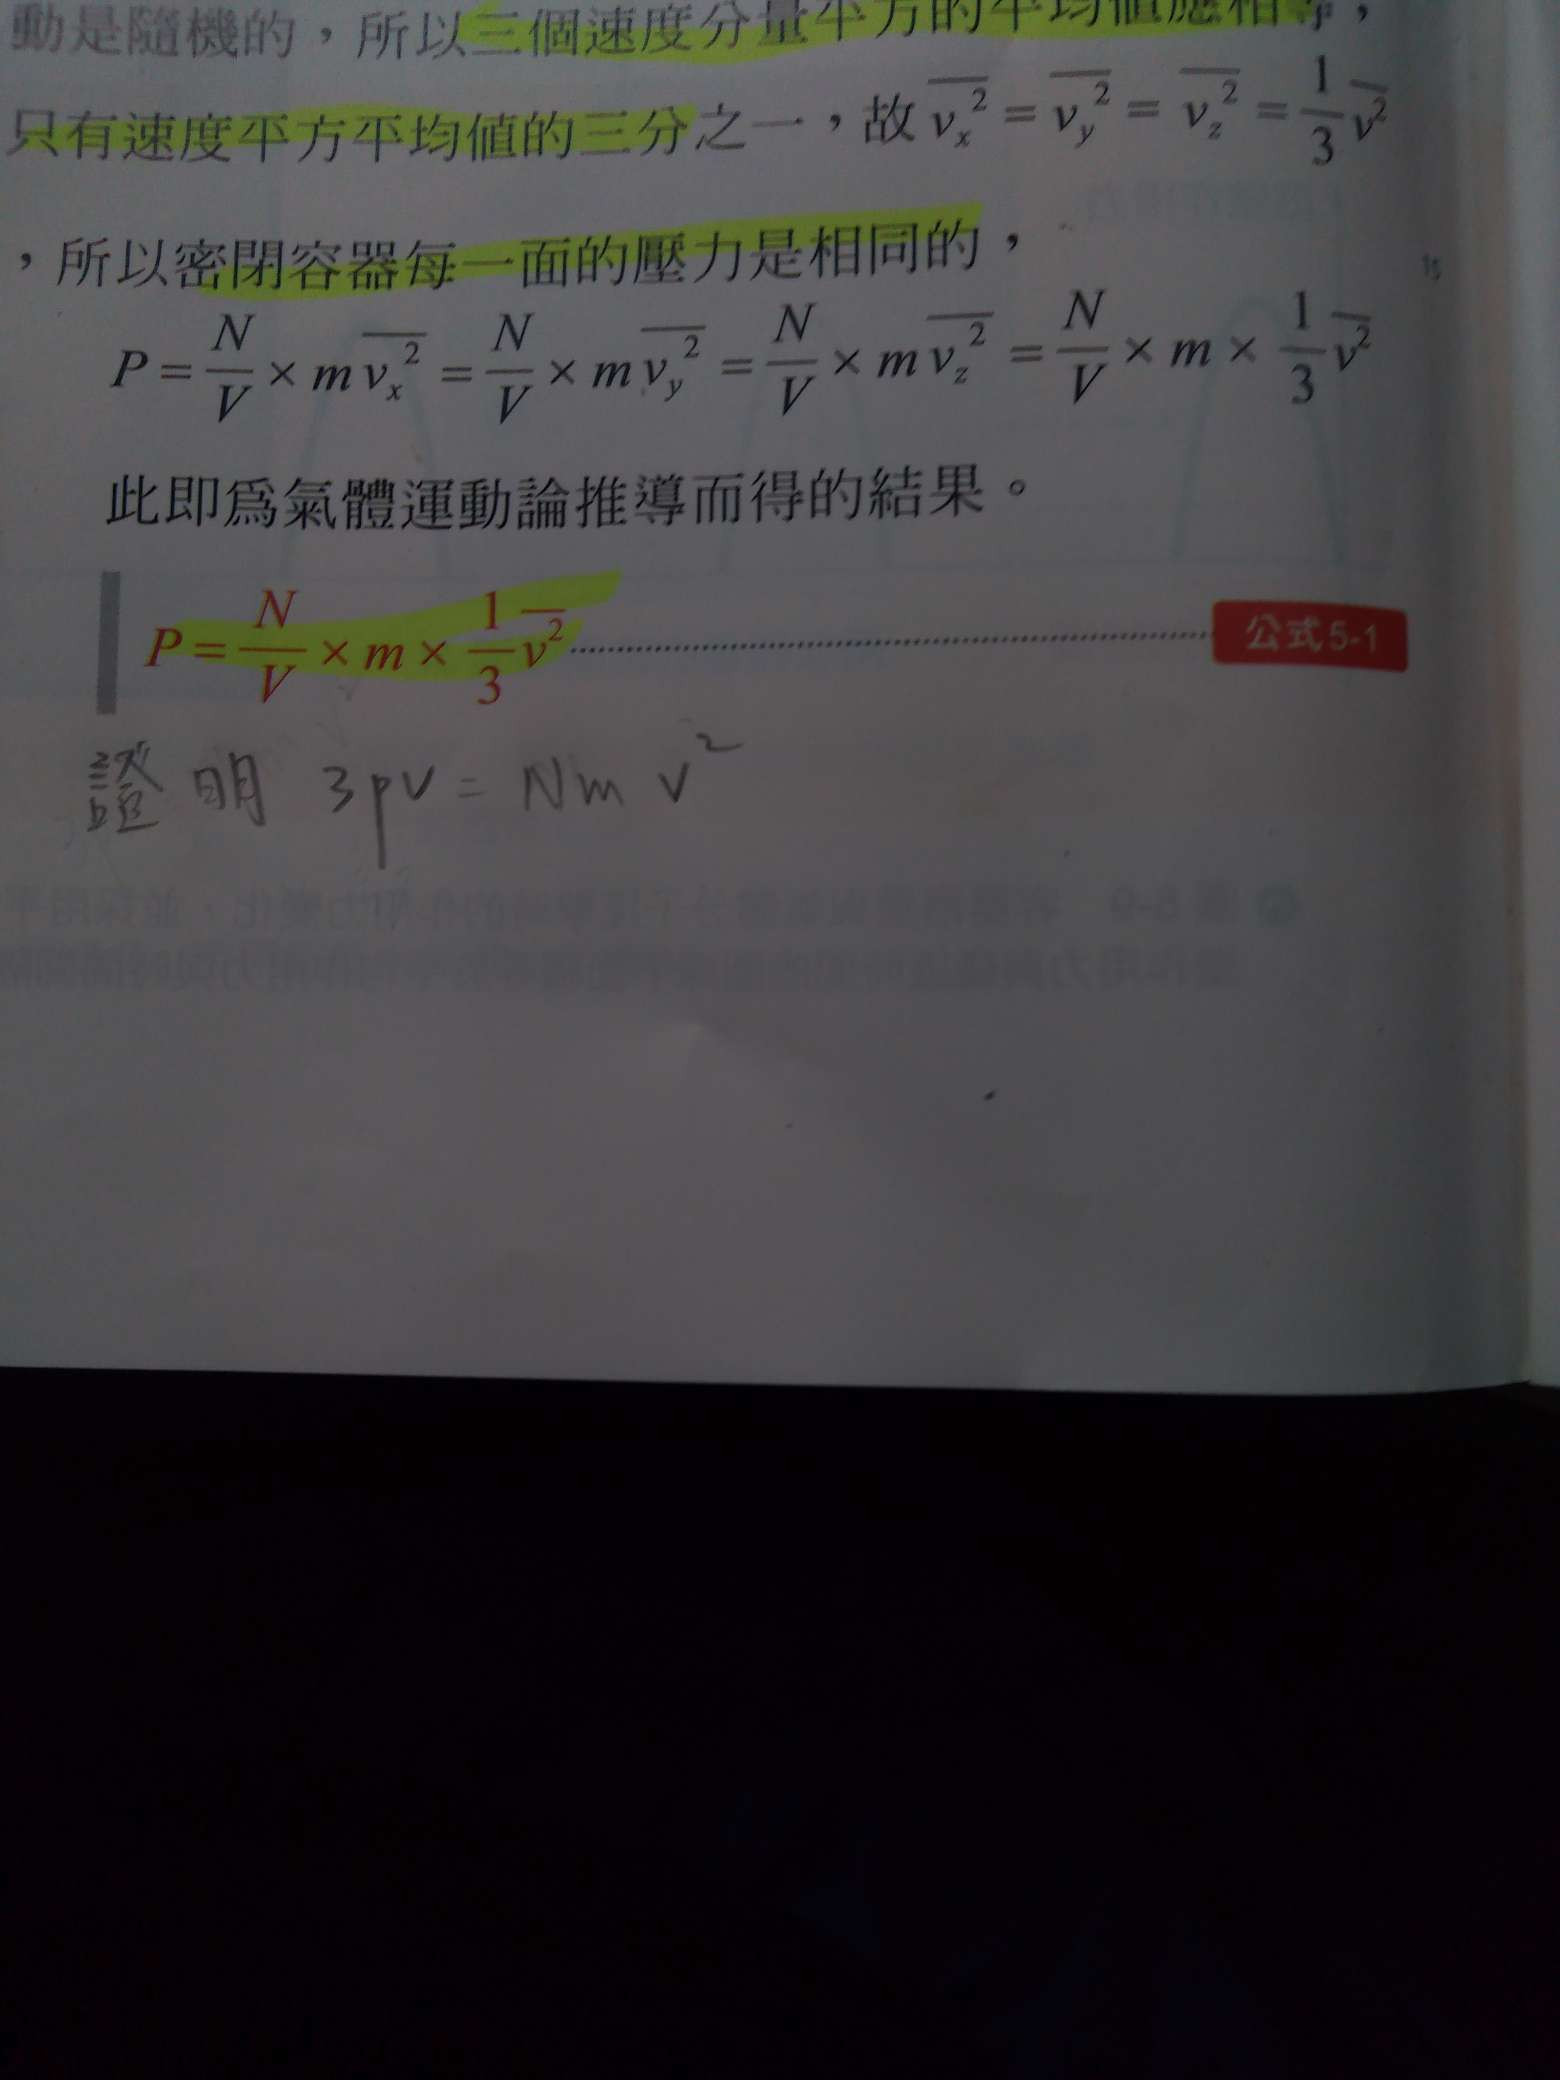 動是隨機的，所以三個速度分量平方的平均值應相等，
只有速度平方平均值的三分之一，故 $\overline{v_x^2} = \overline{v_y^2} = \overline{v_z^2} = \frac{1}{3}\overline{v^2}$
，所以密閉容器每一面的壓力是相同的，
$P = \frac{N}{V} \times m\overline{v_x^2} = \frac{N}{V} \times m\overline{v_y^2} = \frac{N}{V} \times m\overline{v_z^2} = \frac{N}{V} \times m \times \frac{1}{3}\overline{v^2}$
此即為氣體運動論推導而得的結果。
$P = \frac{N}{V} \times m \times \frac{1}{3}\overline{v^2}$ 公式5-1
證明 3pv = Nm v²